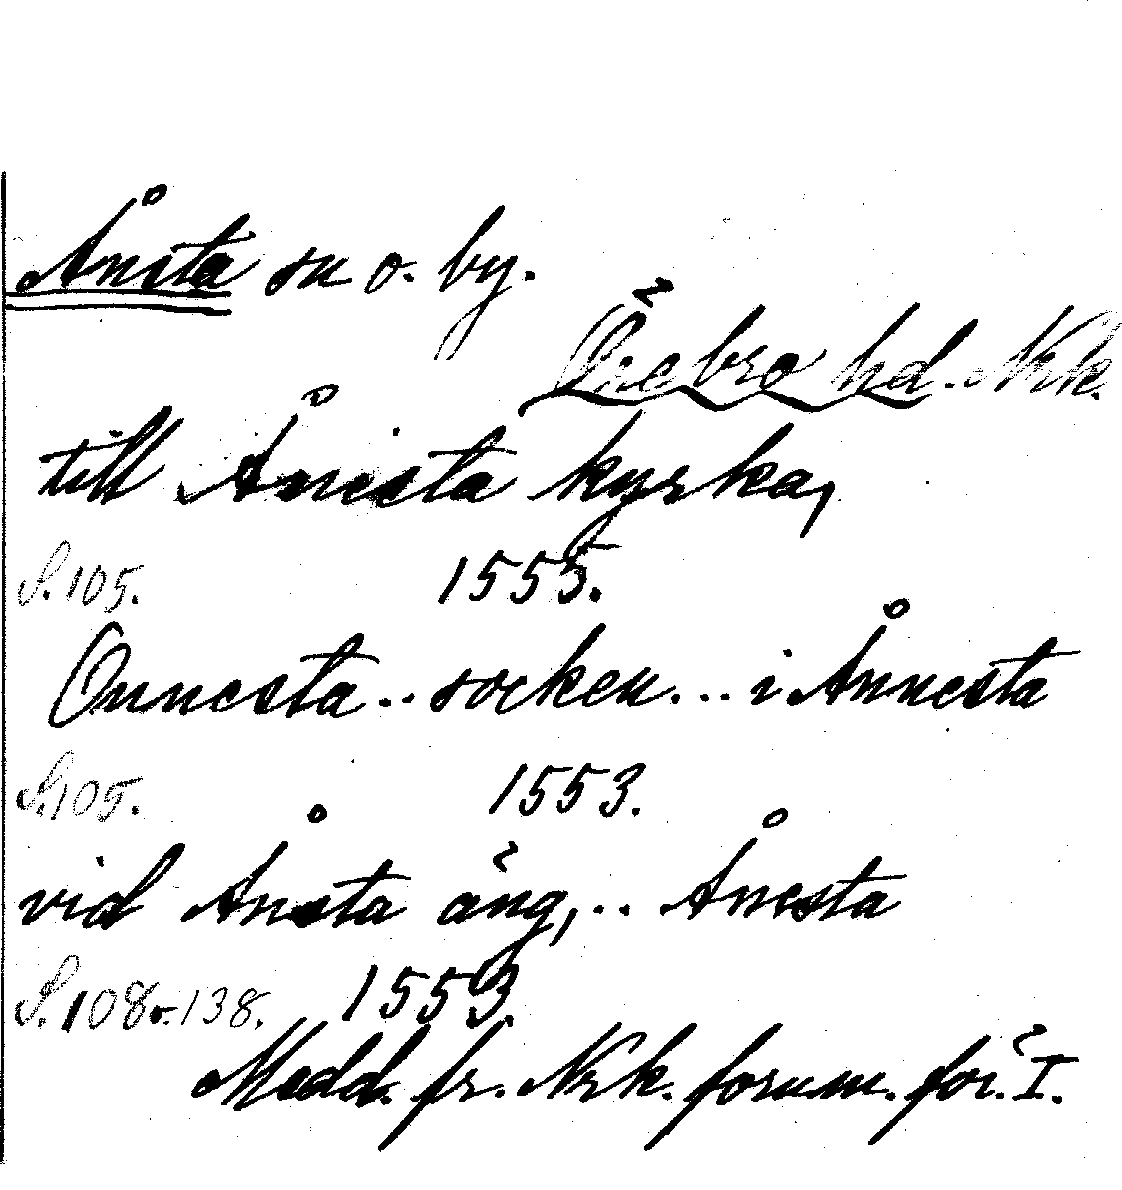 Ånsta sn o. by.
Örebro hd. Nrk.
till Ånesta kyrka,
S. 105. 1555.
Onnesta .. socken ... i Ånnesta
S. 105. 1553.
vid Ånsta äng, .. Ånesta
S. 108 o. 138. 1553
Medd. fr. Nrk. fornm. för. I.